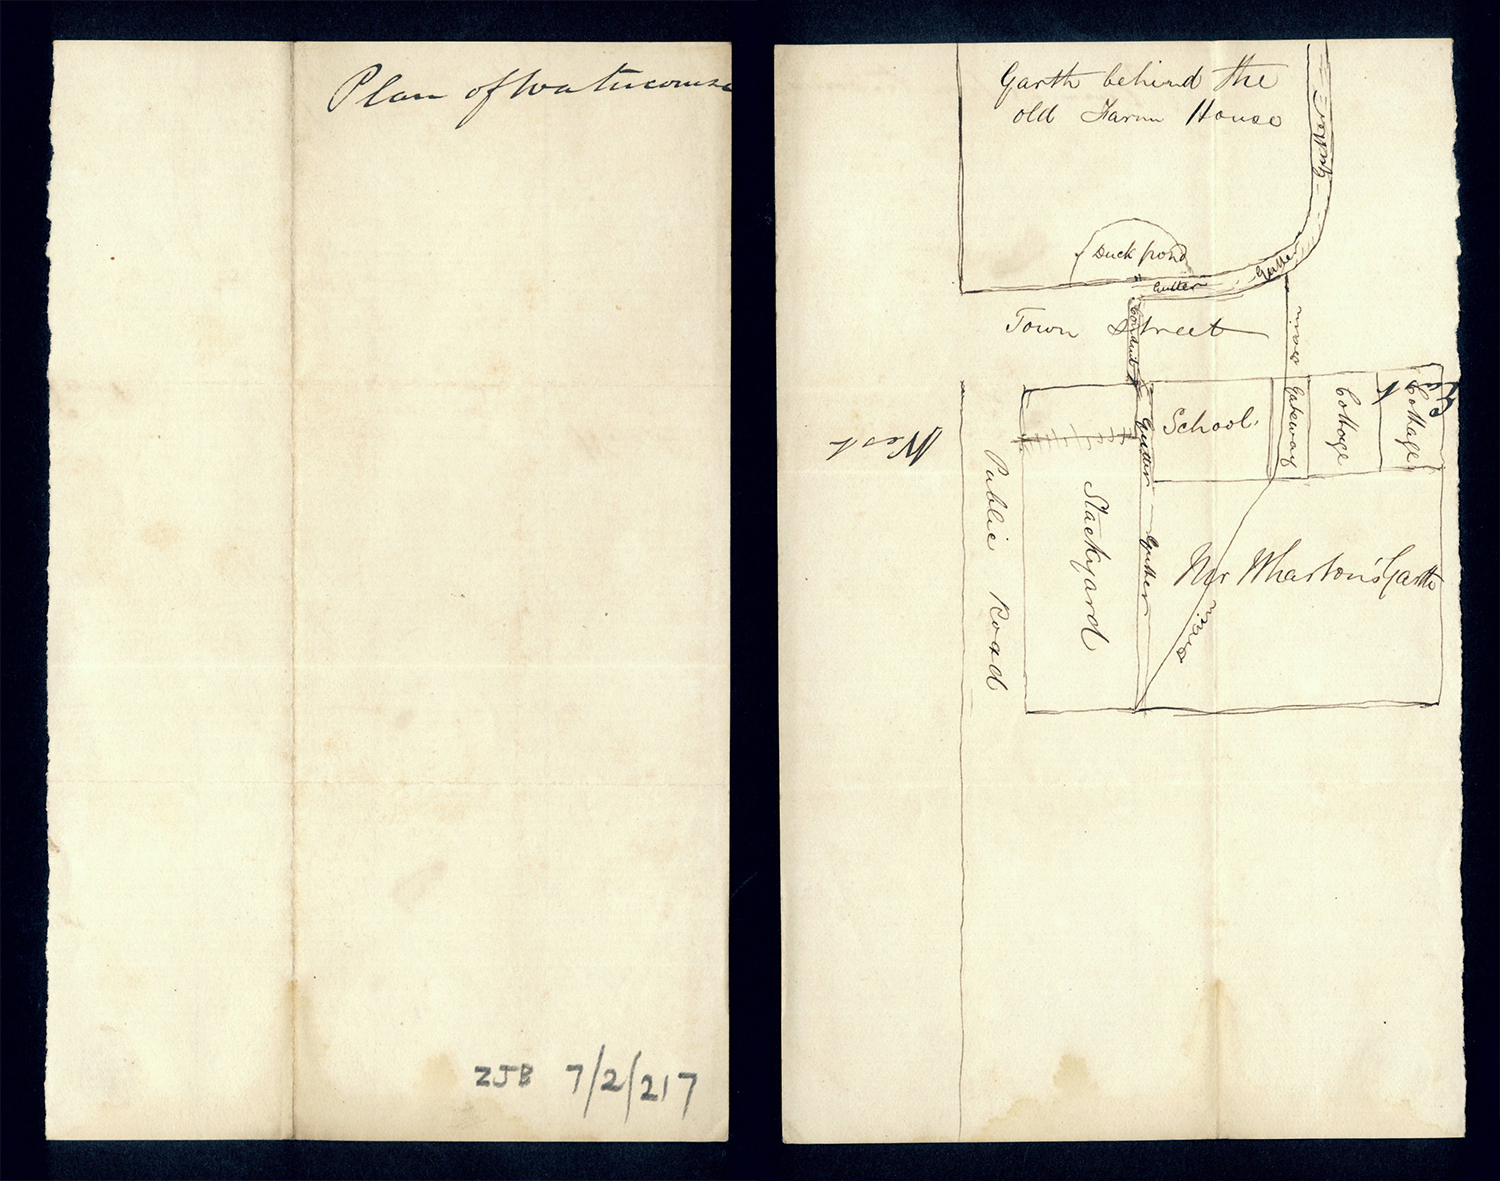 Plan of Watercourse
ZJB 7/2/217
Garth behind the
old Farm House
Gutter
Duck pond
Gutter
Gutter
Town Street
Conduit
West
School
Gateway
Cottage
Cottage
Gutter
Public Road
Stackyard
Gutter
Mr Wharton's Garth
Drain